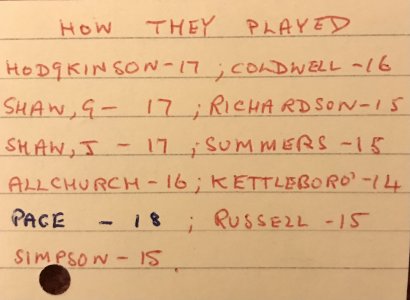 HOW THEY PLAYED
HODGKINSON-17 ; COLDWELL -16
SHAW, G- 17 ; RICHARDSON-15
SHAW, J - 17 ; SUMMERS -15
ALLCHURCH-16; KETTLEBORO'-14
PAGE - 18 ; RUSSELL -15
SIMPSON-15